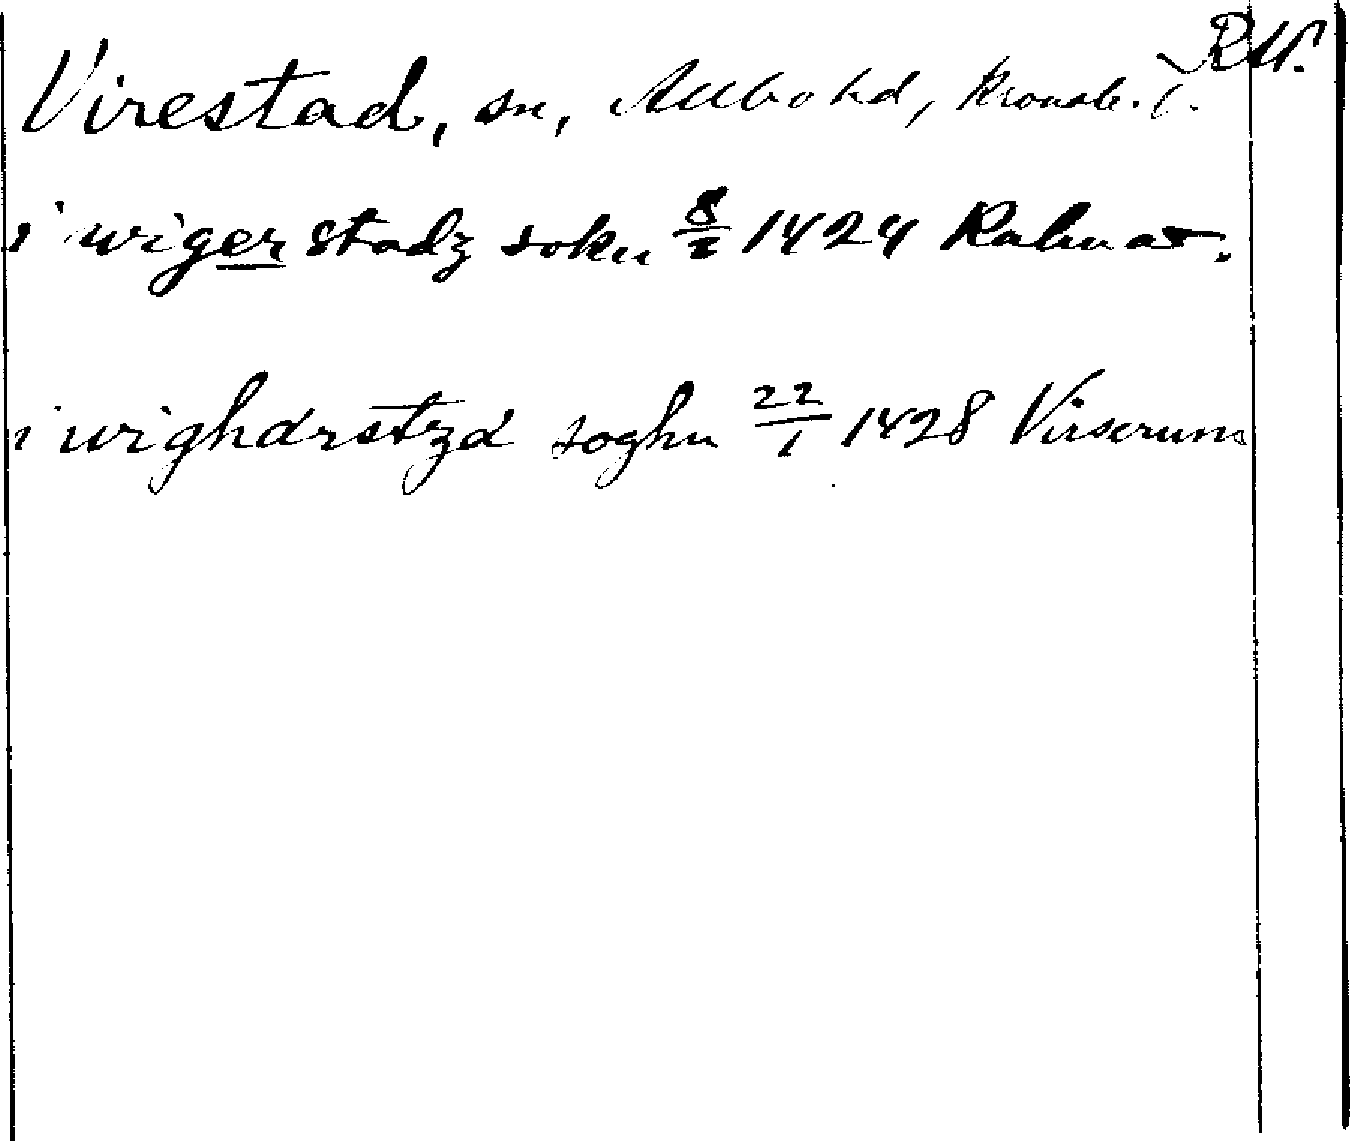 RAP.
Virestad, sn, Allbo hd, Kronob. l.
i wigerstadz sokn 8/2 1424 Kalmar.
i wighdrstzd soghn 22/1 1428 Virserum